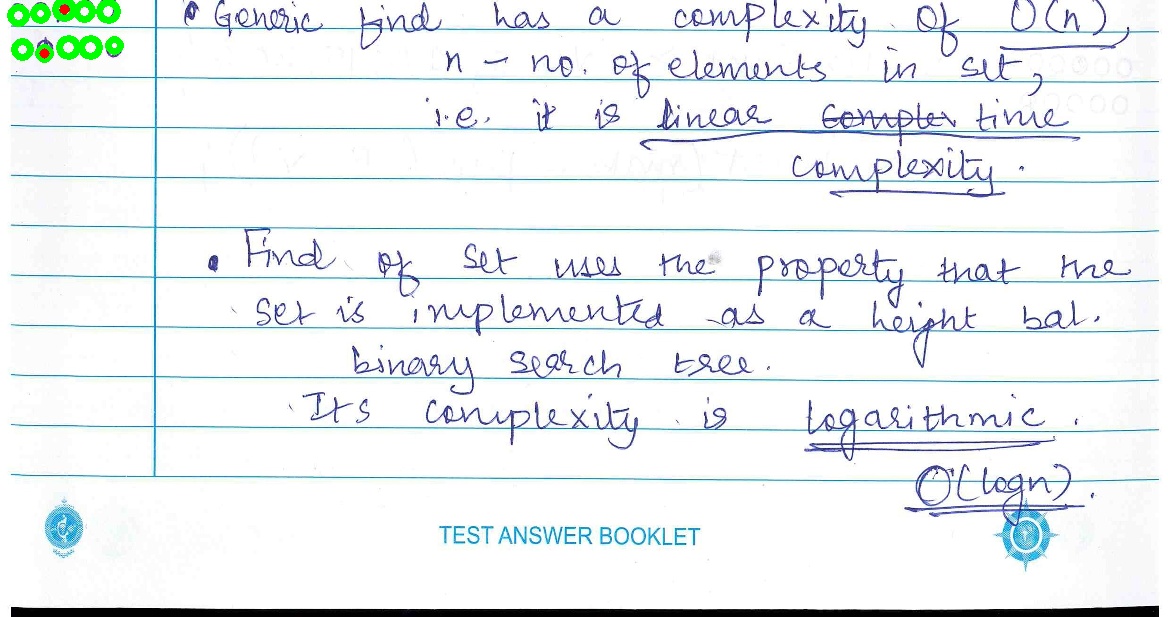 • Generic find has a complexity of O(n),
n - no. of elements in set,
i.e. it is linear complex time
complexity.
• Find of set uses the property that the
set is implemented as a height bal.
binary search tree.
Its complexity is logarithmic.
O(logn).
TEST ANSWER BOOKLET